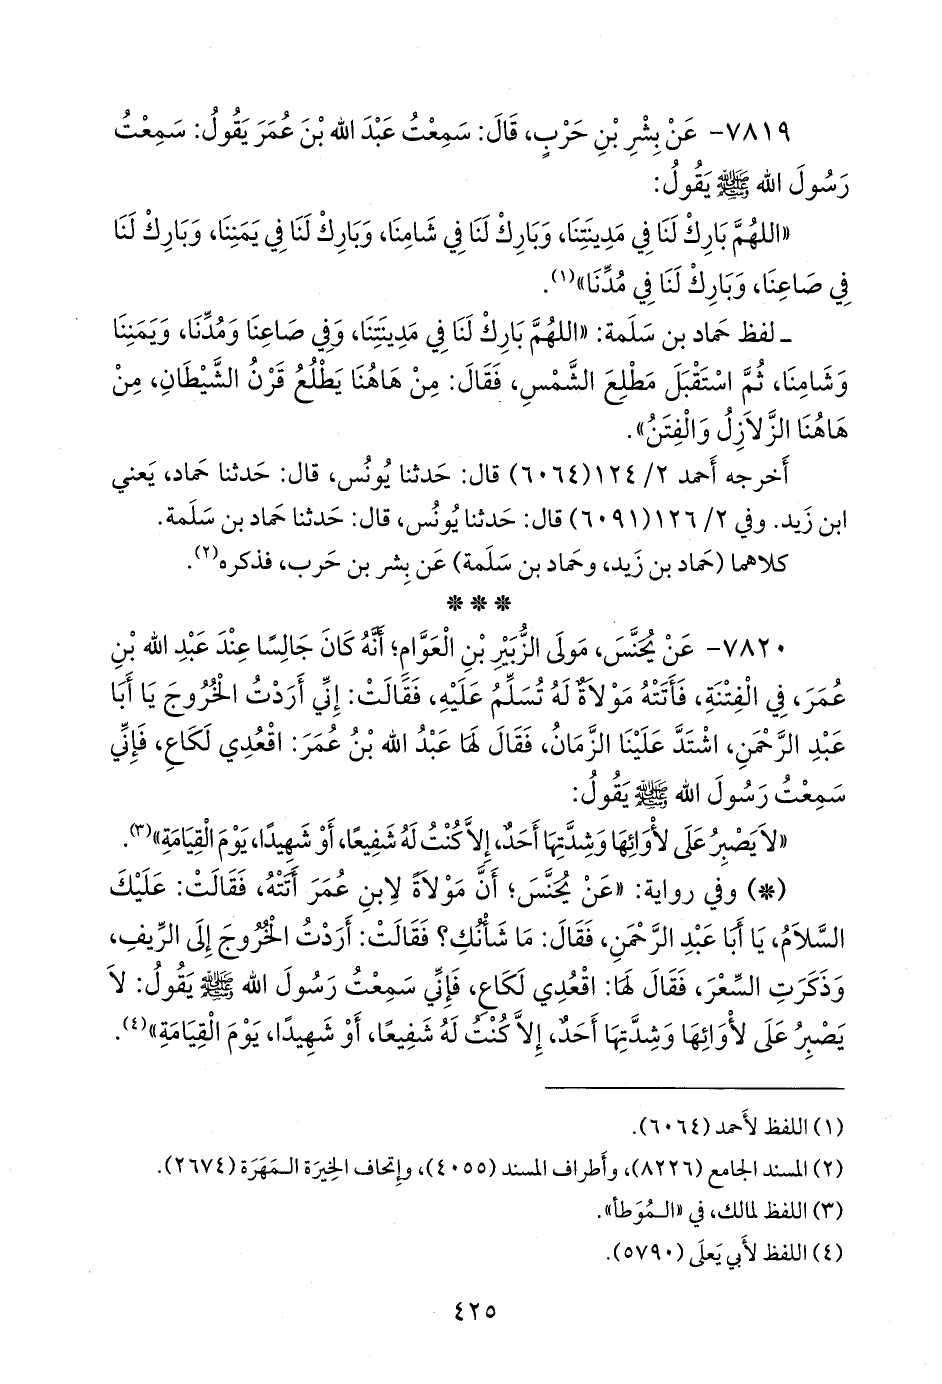 ٧٨١٩- عَنْ بِشْرِ بْنِ حَرْبٍ، قَالَ: سَمِعْتُ عَبْدَ الله بْنَ عُمَرَ يَقُولُ: سَمِعْتُ
رَسُولَ الله ﷺ يَقُولُ:
«اللهُمَّ بَارِكْ لَنَا فِي مَدِينَتِنَا، وَبَارِكْ لَنَا فِي شَامِنَا، وَبَارِكْ لَنَا فِي يَمَنِنَا، وَبَارِكْ لَنَا
فِي صَاعِنَا، وَبَارِكْ لَنَا فِي مُدِّنَا»(١).
ـ لفظ حَماد بن سَلَمة: «اللهُمَّ بَارِكْ لَنَا فِي مَدِينَتِنَا، وَفِي صَاعِنَا وَمُدِّنَا، وَيَمَنِنَا
وَشَامِنَا، ثُمَّ اسْتَقْبَلَ مَطْلِعَ الشَّمْسِ، فَقَالَ: مِنْ هَاهُنَا يَطْلُعُ قَرْنُ الشَّيْطَانِ، مِنْ
هَاهُنَا الزَّلاَزِلُ وَالْفِتَنُ».
أَخرجه أَحمد ٢/ ١٢٤ (٦٠٦٤) قال: حَدثنا يُونُس، قال: حَدثنا حَماد، يَعني
ابن زَيد. وفي ٢/ ١٢٦ (٦٠٩١) قال: حَدثنا يُونُس، قال: حَدثنا حَماد بن سَلَمة.
كلاهما (حَماد بن زَيد، وحَماد بن سَلَمة) عَن بِشر بن حَرب، فذكره(٢).
* * *
٧٨٢٠- عَنْ يُحَنَّسَ، مَولَى الزُّبَيْرِ بْنِ الْعَوَّامِ؛ أَنَّهُ كَانَ جَالِسًا عِنْدَ عَبْدِ الله بْنِ
عُمَرَ، فِي الْفِتْنَةِ، فَأَتَتْهُ مَوْلاَةٌ لَهُ تُسَلِّمُ عَلَيْهِ، فَقَالَتْ: إِنِّي أَرَدْتُ الْخُرُوجَ يَا أَبَا
عَبْدِ الرَّحْمَنِ، اشْتَدَّ عَلَيْنَا الزَّمَانُ، فَقَالَ لَهَا عَبْدُ الله بْنُ عُمَرَ: اقْعُدِي لَكَاعِ، فَإِنِّي
سَمِعْتُ رَسُولَ الله ﷺ يَقُولُ:
«لاَ يَصْبِرُ عَلَى لأْوَائِهَا وَشِدَّتِهَا أَحَدٌ، إِلاَّ كُنْتُ لَهُ شَفِيعًا، أَوْ شَهِيدًا، يَوْمَ الْقِيَامَةِ»(٣).
(*) وفي رواية: «عَنْ يُحَنَّسَ؛ أَنَّ مَوْلاَةً لاِبنِ عُمَرَ أَتَتْهُ، فَقَالَتْ: عَلَيْكَ
السَّلاَمُ، يَا أَبَا عَبْدِ الرَّحْمَنِ، فَقَالَ: مَا شَأْنُكِ؟ فَقَالَتْ: أَرَدْتُ الْخُرُوجَ إِلَى الرِّيفِ،
وَذَكَرَتِ السِّعْرَ، فَقَالَ لَهَا: اقْعُدِي لَكَاعِ، فَإِنِّي سَمِعْتُ رَسُولَ الله ﷺ يَقُولُ: لاَ
يَصْبِرُ عَلَى لأْوَائِهَا وَشِدَّتِهَا أَحَدٌ، إِلاَّ كُنْتُ لَهُ شَفِيعًا، أَوْ شَهِيدًا، يَوْمَ الْقِيَامَةِ»(٤).
(١) اللفظ لأَحمد (٦٠٦٤).
(٢) المسند الجامع (٨٢٢٦)، وأَطراف المسند (٤٠٥٥)، وإتحاف الخِيرَة المَهَرَة (٢٦٧٤).
(٣) اللفظ لمالك، في «المُوَطأ».
(٤) اللفظ لأَبي يَعلَى (٥٧٩٠).
٤٢٥